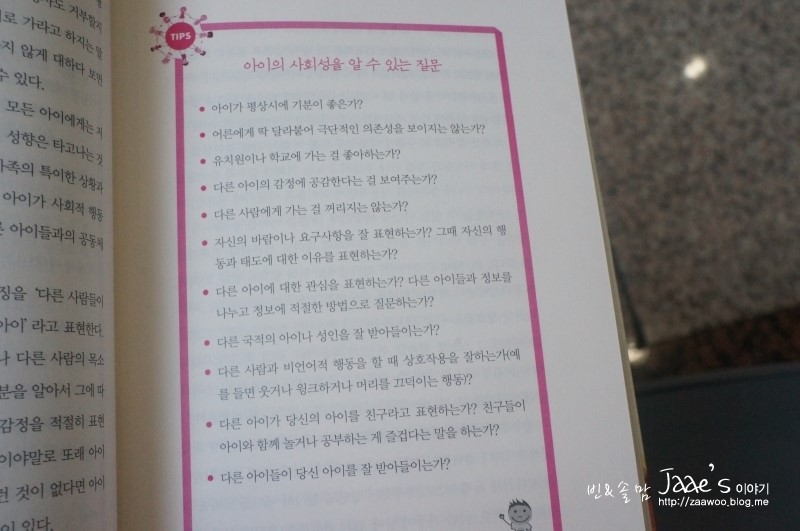 도 거부할지
로 가라고 하지는 말
지 않게 대하다 보면
수 있다.
모든 아이에게는 지
성향은 타고나는 것
가족의 특이한 상황과
아이가 사회적 행동
른 아이들과의 공동체
징을 '다른 사람들이
아이'라고 표현한다.
나 다른 사람의 목소
분을 알아서 그에 따
감정을 적절히 표현
이야말로 또래 아이
런 것이 없다면 아이
이 있다.
TIPS
아이의 사회성을 알 수 있는 질문
• 아이가 평상시에 기분이 좋은가?
• 어른에게 딱 달라붙어 극단적인 의존성을 보이지는 않는가?
• 유치원이나 학교에 가는 걸 좋아하는가?
• 다른 아이의 감정에 공감한다는 걸 보여주는가?
• 다른 사람에게 가는 걸 꺼리지는 않는가?
• 자신의 바람이나 요구사항을 잘 표현하는가? 그때 자신의 행
동과 태도에 대한 이유를 표현하는가?
• 다른 아이에 대한 관심을 표현하는가? 다른 아이들과 정보를
나누고 정보에 적절한 방법으로 질문하는가?
• 다른 국적의 아이나 성인을 잘 받아들이는가?
• 다른 사람과 비언어적 행동을 할 때 상호작용을 잘하는가(예
를 들면 웃거나 윙크하거나 머리를 끄덕이는 행동)?
• 다른 아이가 당신의 아이를 친구라고 표현하는가? 친구들이
아이와 함께 놀거나 공부하는 게 즐겁다는 말을 하는가?
• 다른 아이들이 당신 아이를 잘 받아들이는가?
빈&솔맘 Jaae's 이야기
http://zaawoo.blog.me